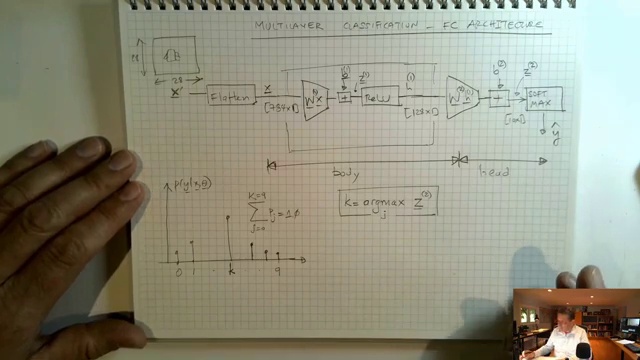 MULTILAYER CLASSIFICATION _ FC ARCHITECTURE
28
28
x'
Flatten
x
[784x1]
W⁽¹⁾x
b⁽¹⁾
+
z⁽¹⁾
ReLU
h⁽¹⁾
[128x1]
W⁽²⁾h⁽¹⁾
b⁽²⁾
+
z⁽²⁾
[10x1]
SOFT
MAX
ŷ
body
head
p(y|x,θ)
K=9
Σ Pj = 1.0
j=0
k = argmax z⁽²⁾
j
0 1 k 9